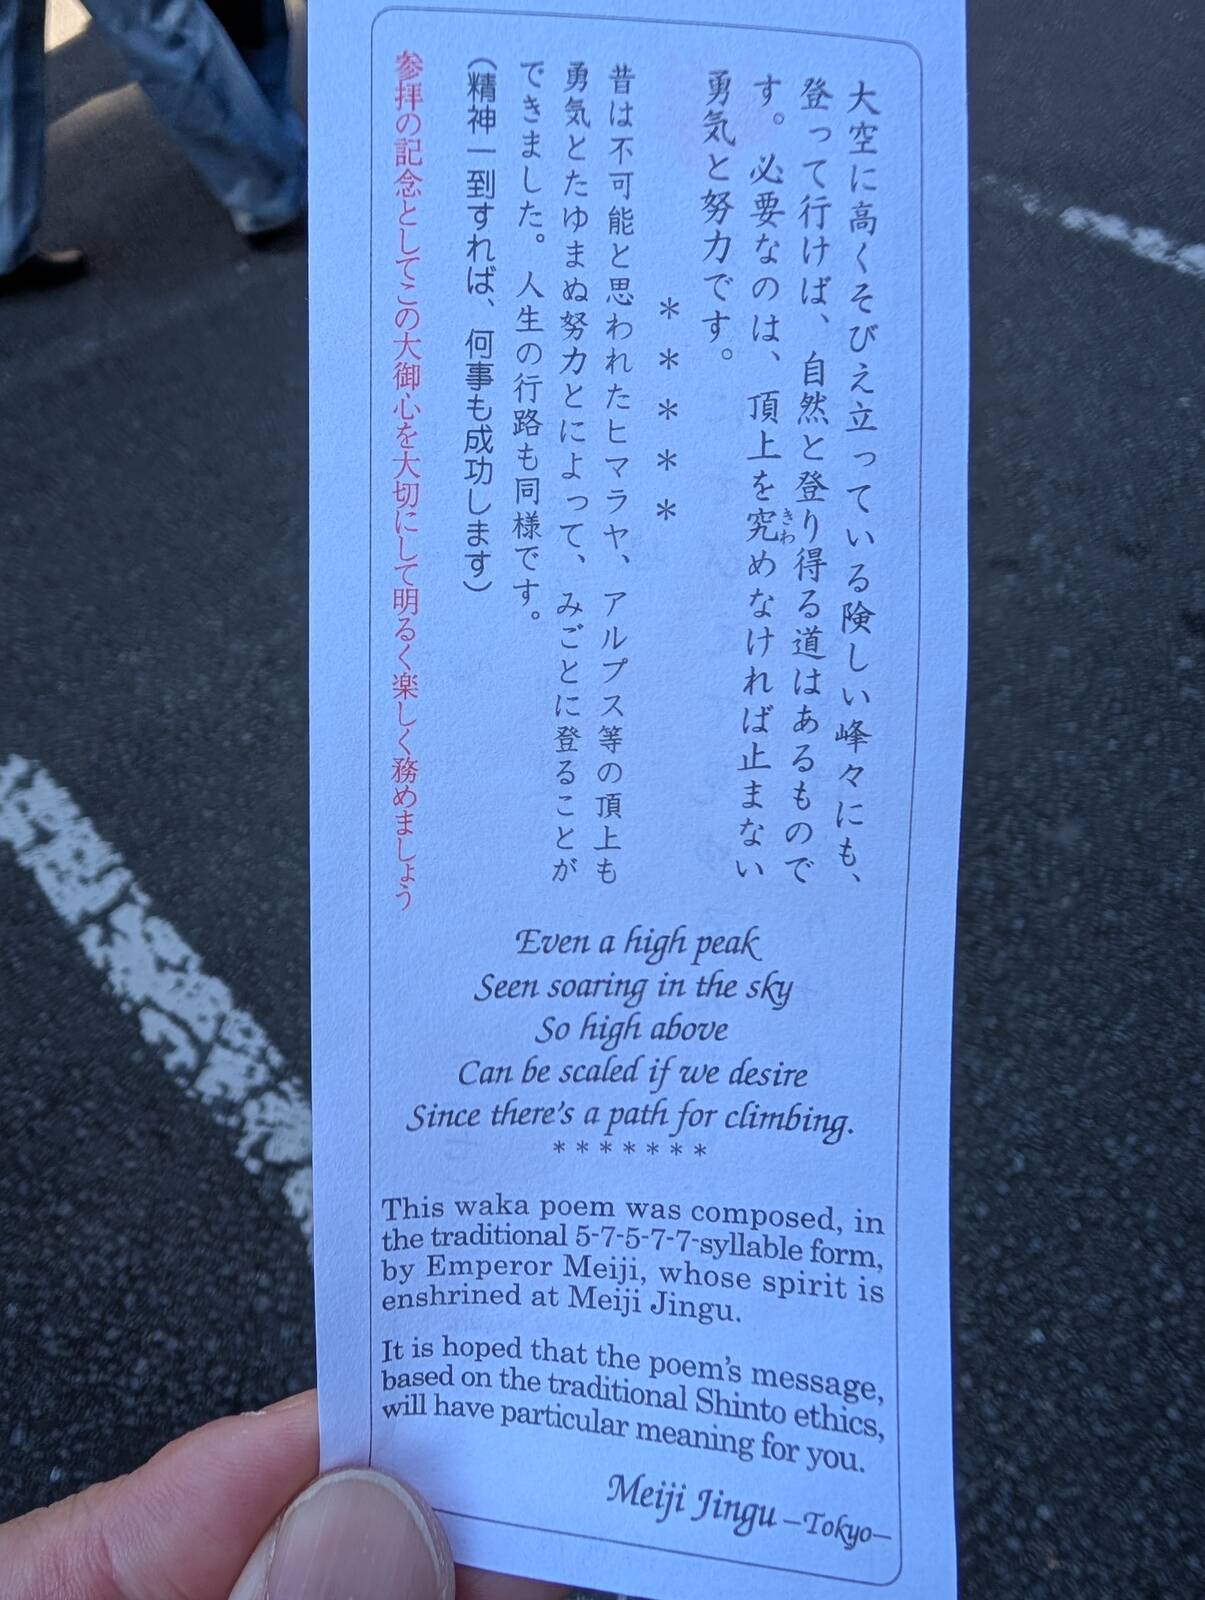 大空に高くそびえ立っている険しい峰々にも、
登って行けば、自然と登り得る道はあるもので
す。必要なのは、頂上を究めなければ止まない
きわ
勇気と努力です。
＊＊＊＊＊
昔は不可能と思われたヒマラヤ、アルプス等の頂上も
勇気とたゆまぬ努力とによって、みごとに登ることが
できました。人生の行路も同様です。
（精神一到すれば、何事も成功します）
参拝の記念としてこの大御心を大切にして明るく楽しく務めましょう
Even a high peak
Seen soaring in the sky
So high above
Can be scaled if we desire
Since there's a path for climbing.
*******
This waka poem was composed, in
the traditional 5-7-5-7-7-syllable form,
by Emperor Meiji, whose spirit is
enshrined at Meiji Jingu.
It is hoped that the poem's message,
based on the traditional Shinto ethics,
will have particular meaning for you.
Meiji Jingu –Tokyo–